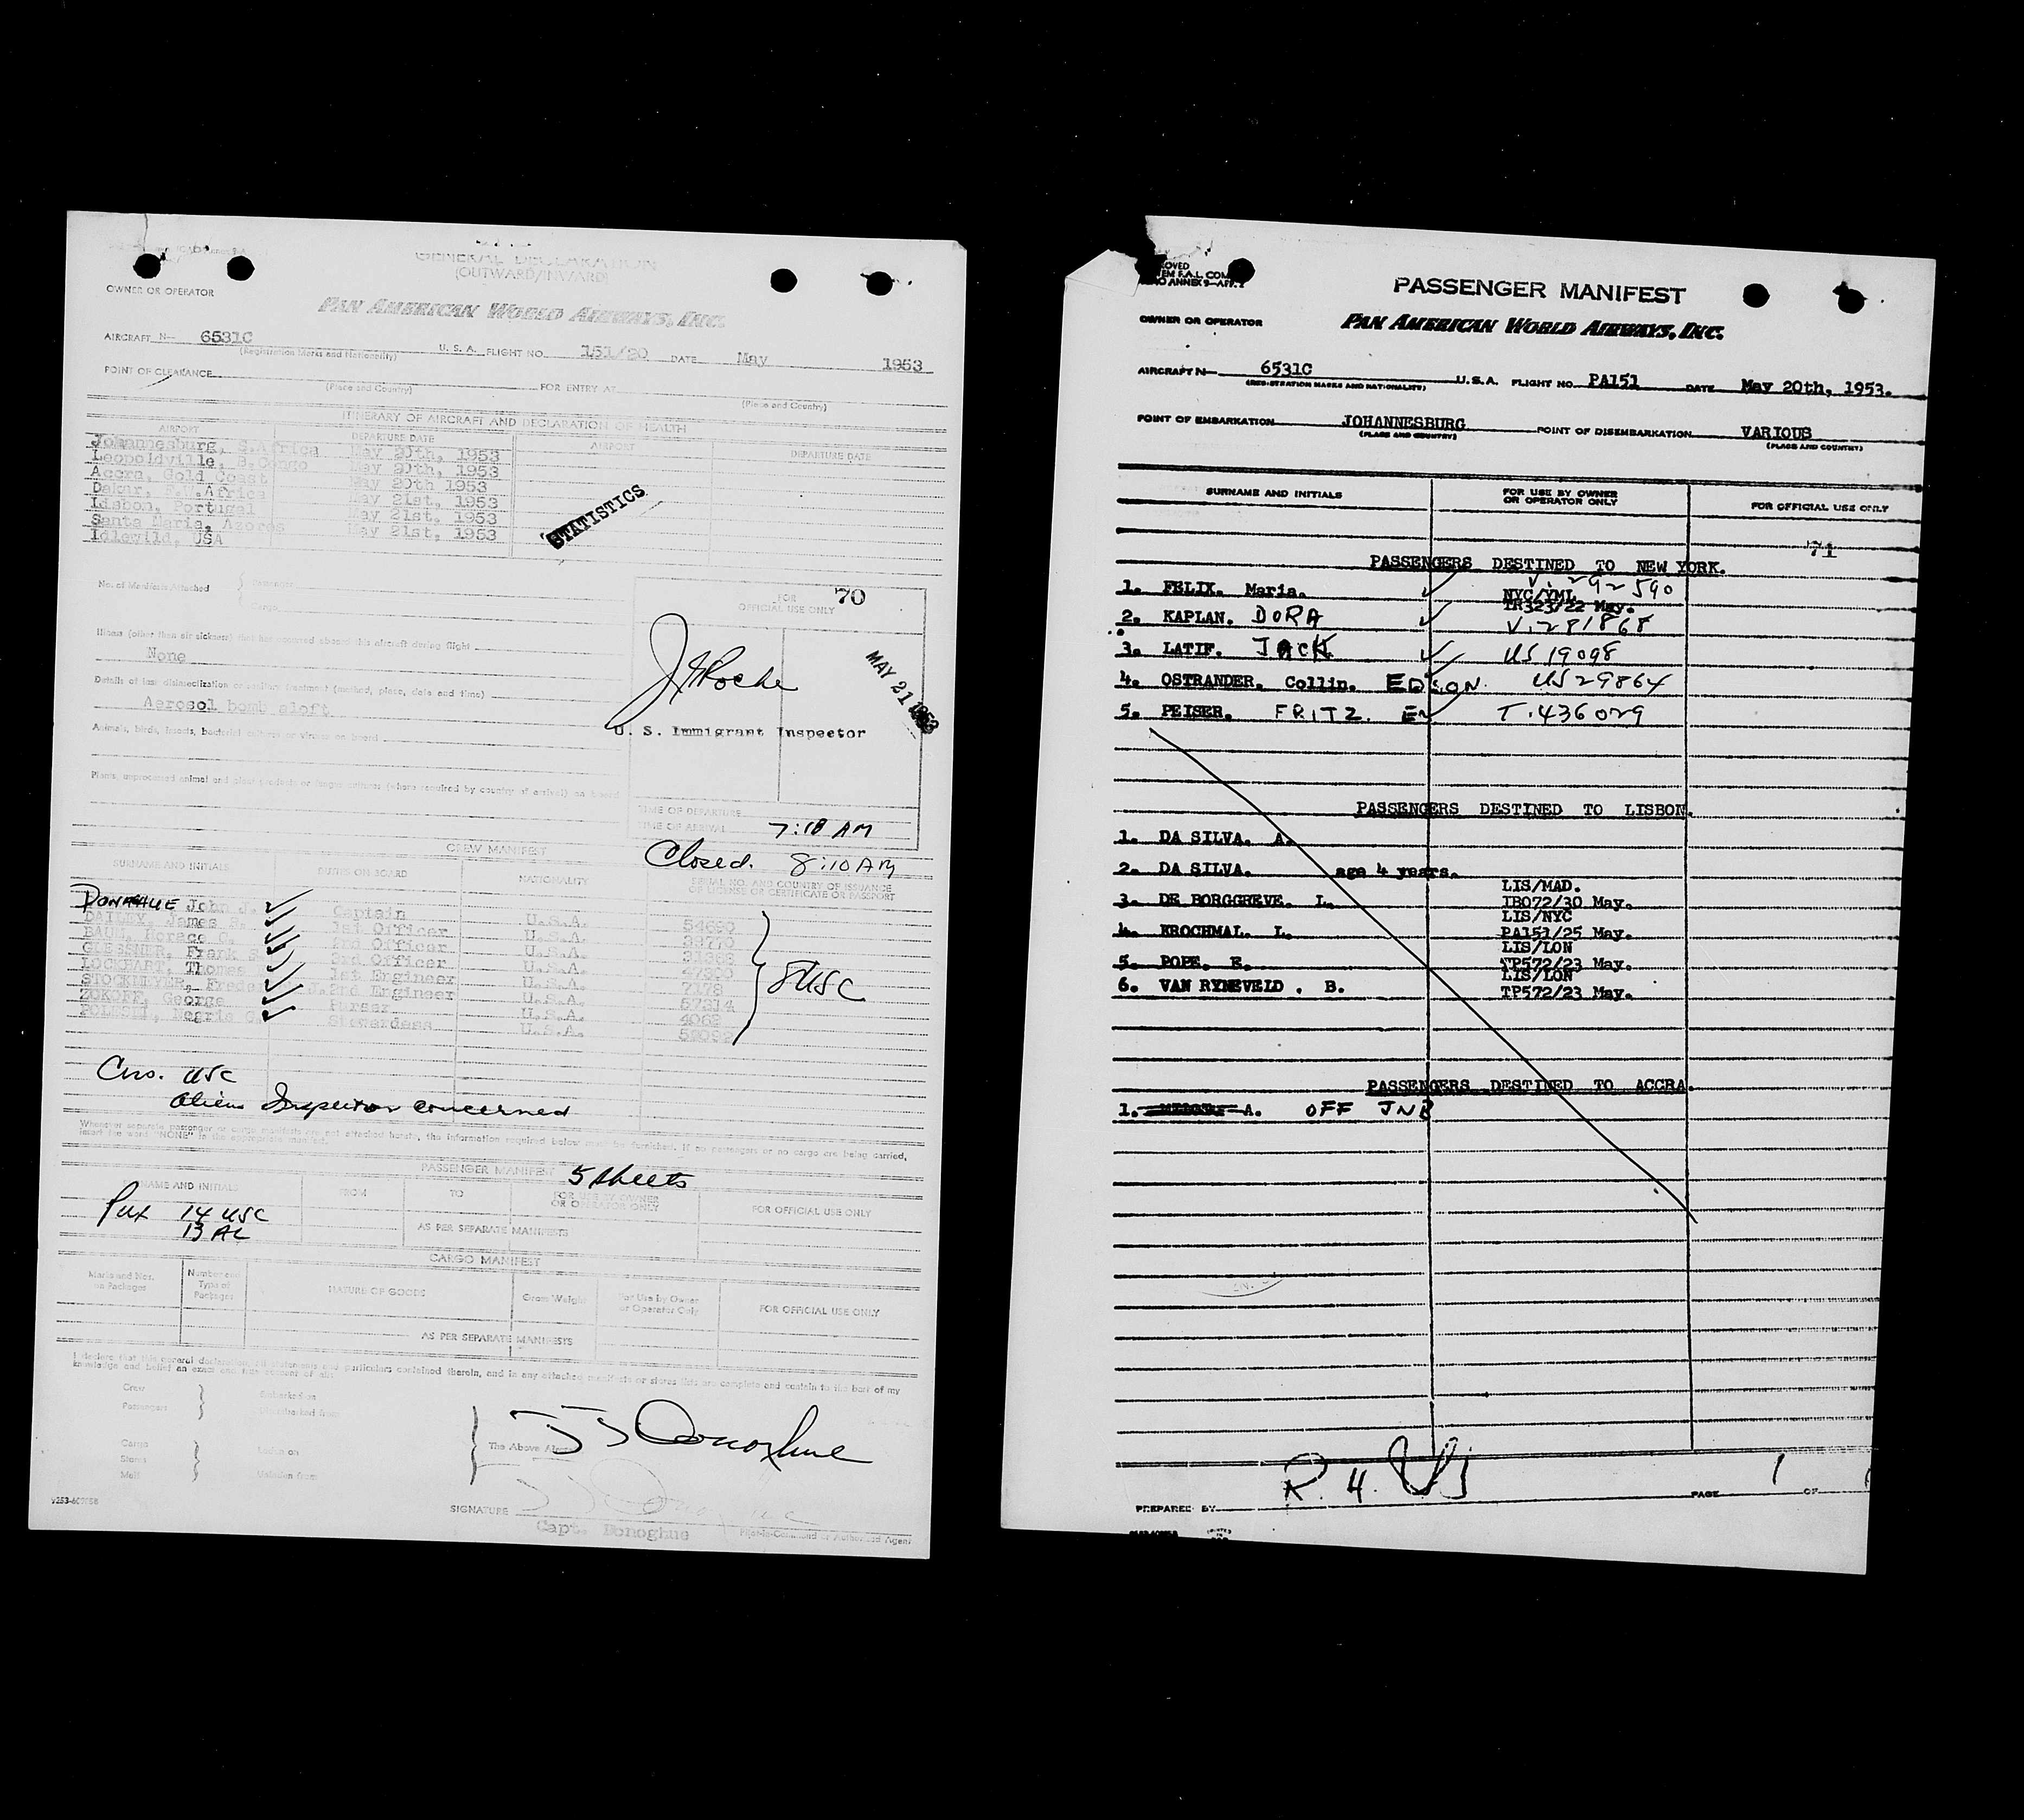 GENERAL DECLARATION
(OUTWARD/INWARD)
OWNER OR OPERATOR
PAN AMERICAN WORLD AIRWAYS, INC.
AIRCRAFT N— 6531C U. S. A. FLIGHT NO. 151/20 DATE May 1953
(Registration Marks and Nationality)
POINT OF CLEARANCE FOR ENTRY AT
(Place and Country) (Place and Country)
ITINERARY OF AIRCRAFT AND DECLARATION OF HEALTH
AIRPORT DEPARTURE DATE AIRPORT DEPARTURE DATE
Johannesburg, S.Africa May 20th, 1953
Leopoldville, B.Congo May 20th, 1953
Accra, Gold Coast May 20th 1953
Dakar, F.W.Africa May 21st, 1953
Lisbon, Portugal May 21st, 1953
Santa Maria, Azores May 21st, 1953
Idlewild, USA
STATISTICS
No. of Manifests Attached
Cargo
FOR 70
OFFICIAL USE ONLY
Illness (other than air sickness) that has occurred aboard this aircraft during flight
None
Details of last disinsectization or sanitary treatment (method, place, date and time)
Aerosol bomb aloft
Animals, birds, insects, bacterial cultures or viruses on board
Plants, unprocessed animal and plant products or fungus cultures (where required by country of arrival) on board
J Roche
MAY 21 1953
U. S. Immigrant Inspector
TIME OF DEPARTURE
TIME OF ARRIVAL 7:18 AM
Closed. 8:10 AM
CREW MANIFEST
SURNAME AND INITIALS DUTIES ON BOARD NATIONALITY SERIAL NO. AND COUNTRY OF ISSUANCE
OF LICENSE OR CERTIFICATE OR PASSPORT
DONAGHUE John J. Captain U.S.A. 54690
DAILEY, James S. 1st Officer U.S.A.
BAUM, Horace O. 2nd Officer U.S.A.
GLESSNER, Frank S. 3rd Officer U.S.A.
LOCKHART, Thomas 1st Engineer U.S.A. 7178
STOCKMEYER, Frederick J. 2nd Engineer U.S.A. 67314
ZOKOFF, George Purser U.S.A. 4062
Stewardess U.S.A.
8 USC
Cus. USC
Aliens Inspector concerned
Whenever separate passenger or cargo manifests are not attached hereto, the information required below must be furnished. If no passengers or no cargo are being carried,
insert the word "NONE" in the appropriate manifest.
PASSENGER MANIFEST 5 sheets
SURNAME AND INITIALS FROM TO FOR USE BY OWNER
OR OPERATOR ONLY FOR OFFICIAL USE ONLY
Pax 14 USC
13 AL
AS PER SEPARATE MANIFESTS
CARGO MANIFEST
Marks and Nos.
on Packages Number and
Type of
Packages NATURE OF GOODS Gross Weight For Use by Owner
or Operator Only FOR OFFICIAL USE ONLY
AS PER SEPARATE MANIFESTS
I declare that this general declaration, all statements and particulars contained therein, and in any attached manifests or stores lists are complete and contain to the best of my
knowledge and belief an exact and true account of all:
Crew Embarked on
Passengers Disembarked from
Cargo Laden on
Stores
Mail Unladen from
The Above Aircraft
J J Donoghue
SIGNATURE
Capt. Donoghue
Pilot-in-Command or Authorized Agent
PASSENGER MANIFEST
OWNER OR OPERATOR
PAN AMERICAN WORLD AIRWAYS, INC.
AIRCRAFT N— 6531C U. S. A. FLIGHT NO. PA151 DATE May 20th, 1953.
(REGISTRATION MARKS AND NATIONALITY)
POINT OF EMBARKATION JOHANNESBURG POINT OF DISEMBARKATION VARIOUS
(PLACE AND COUNTRY) (PLACE AND COUNTRY)
SURNAME AND INITIALS FOR USE BY OWNER
OR OPERATOR ONLY FOR OFFICIAL USE ONLY
71
PASSENGERS DESTINED TO NEW YORK.
V. 292590
1. FELIX. Maria. NYC/YML
TR323/22 May.
2. KAPLAN. DORA V.281868
3. LATIF. JACK US 19098
4. OSTRANDER. Collin. EDSON. US 29864
5. PEISER. FRITZ. T.436029
PASSENGERS DESTINED TO LISBON.
1. DA SILVA. A.
2. DA SILVA. age 4 years.
LIS/MAD.
3. DE BORGGREVE. L. IB072/30 May.
LIS/NYC
4. KROCHMAL. L. PA151/25 May.
LIS/LON
5. POPE. E. TP572/23 May.
LIS/LON
6. VAN RYNEVELD . B. TP572/23 May.
PASSENGERS DESTINED TO ACCRA.
1. A. OFF JNB
PREPARED BY R. H. PAGE 1 OF